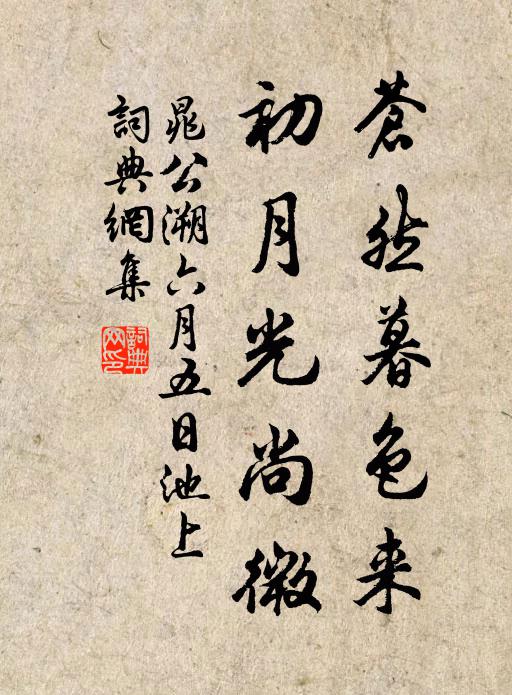 蒼然暮色来
初月光尚微
晁公溯六月五日池上
詞典網集
詞典网印